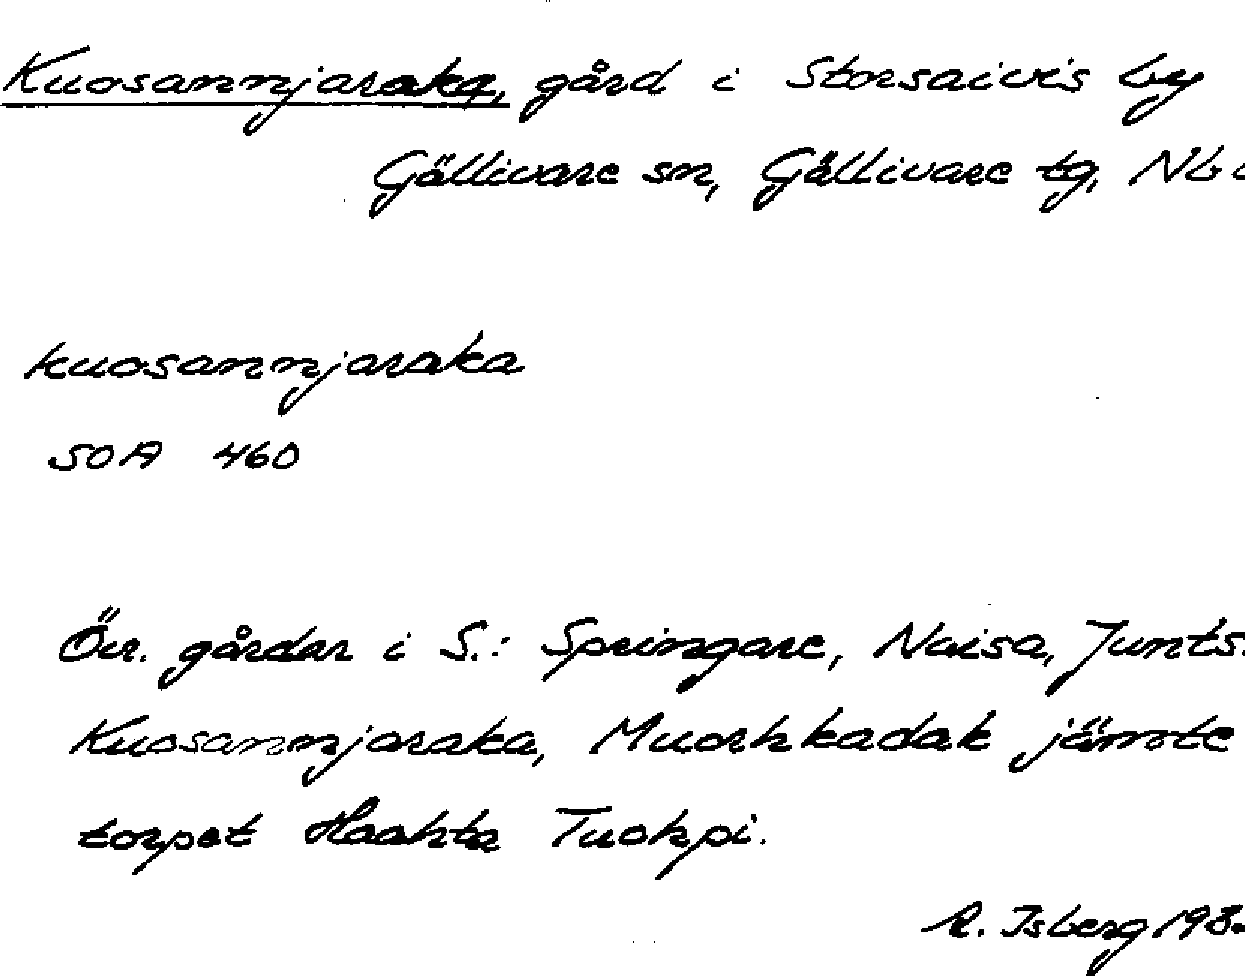 Kuosannjaraka, gård i Storsaivis by
Gällivare sn, Gällivare tg, Nb
kuosannjaraka
SOA 460
Övr. gårdar i S.: Springare, Naisa,
Kuosannjaraka, Muorhkadak jämte
torpet Haahta Tuohpi.
R. Isberg